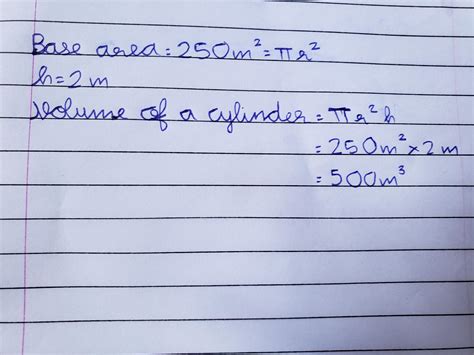 Base area = 250m² = πr²
h = 2 m
Volume of a cylinder = πr²h
= 250m² × 2 m
= 500m³